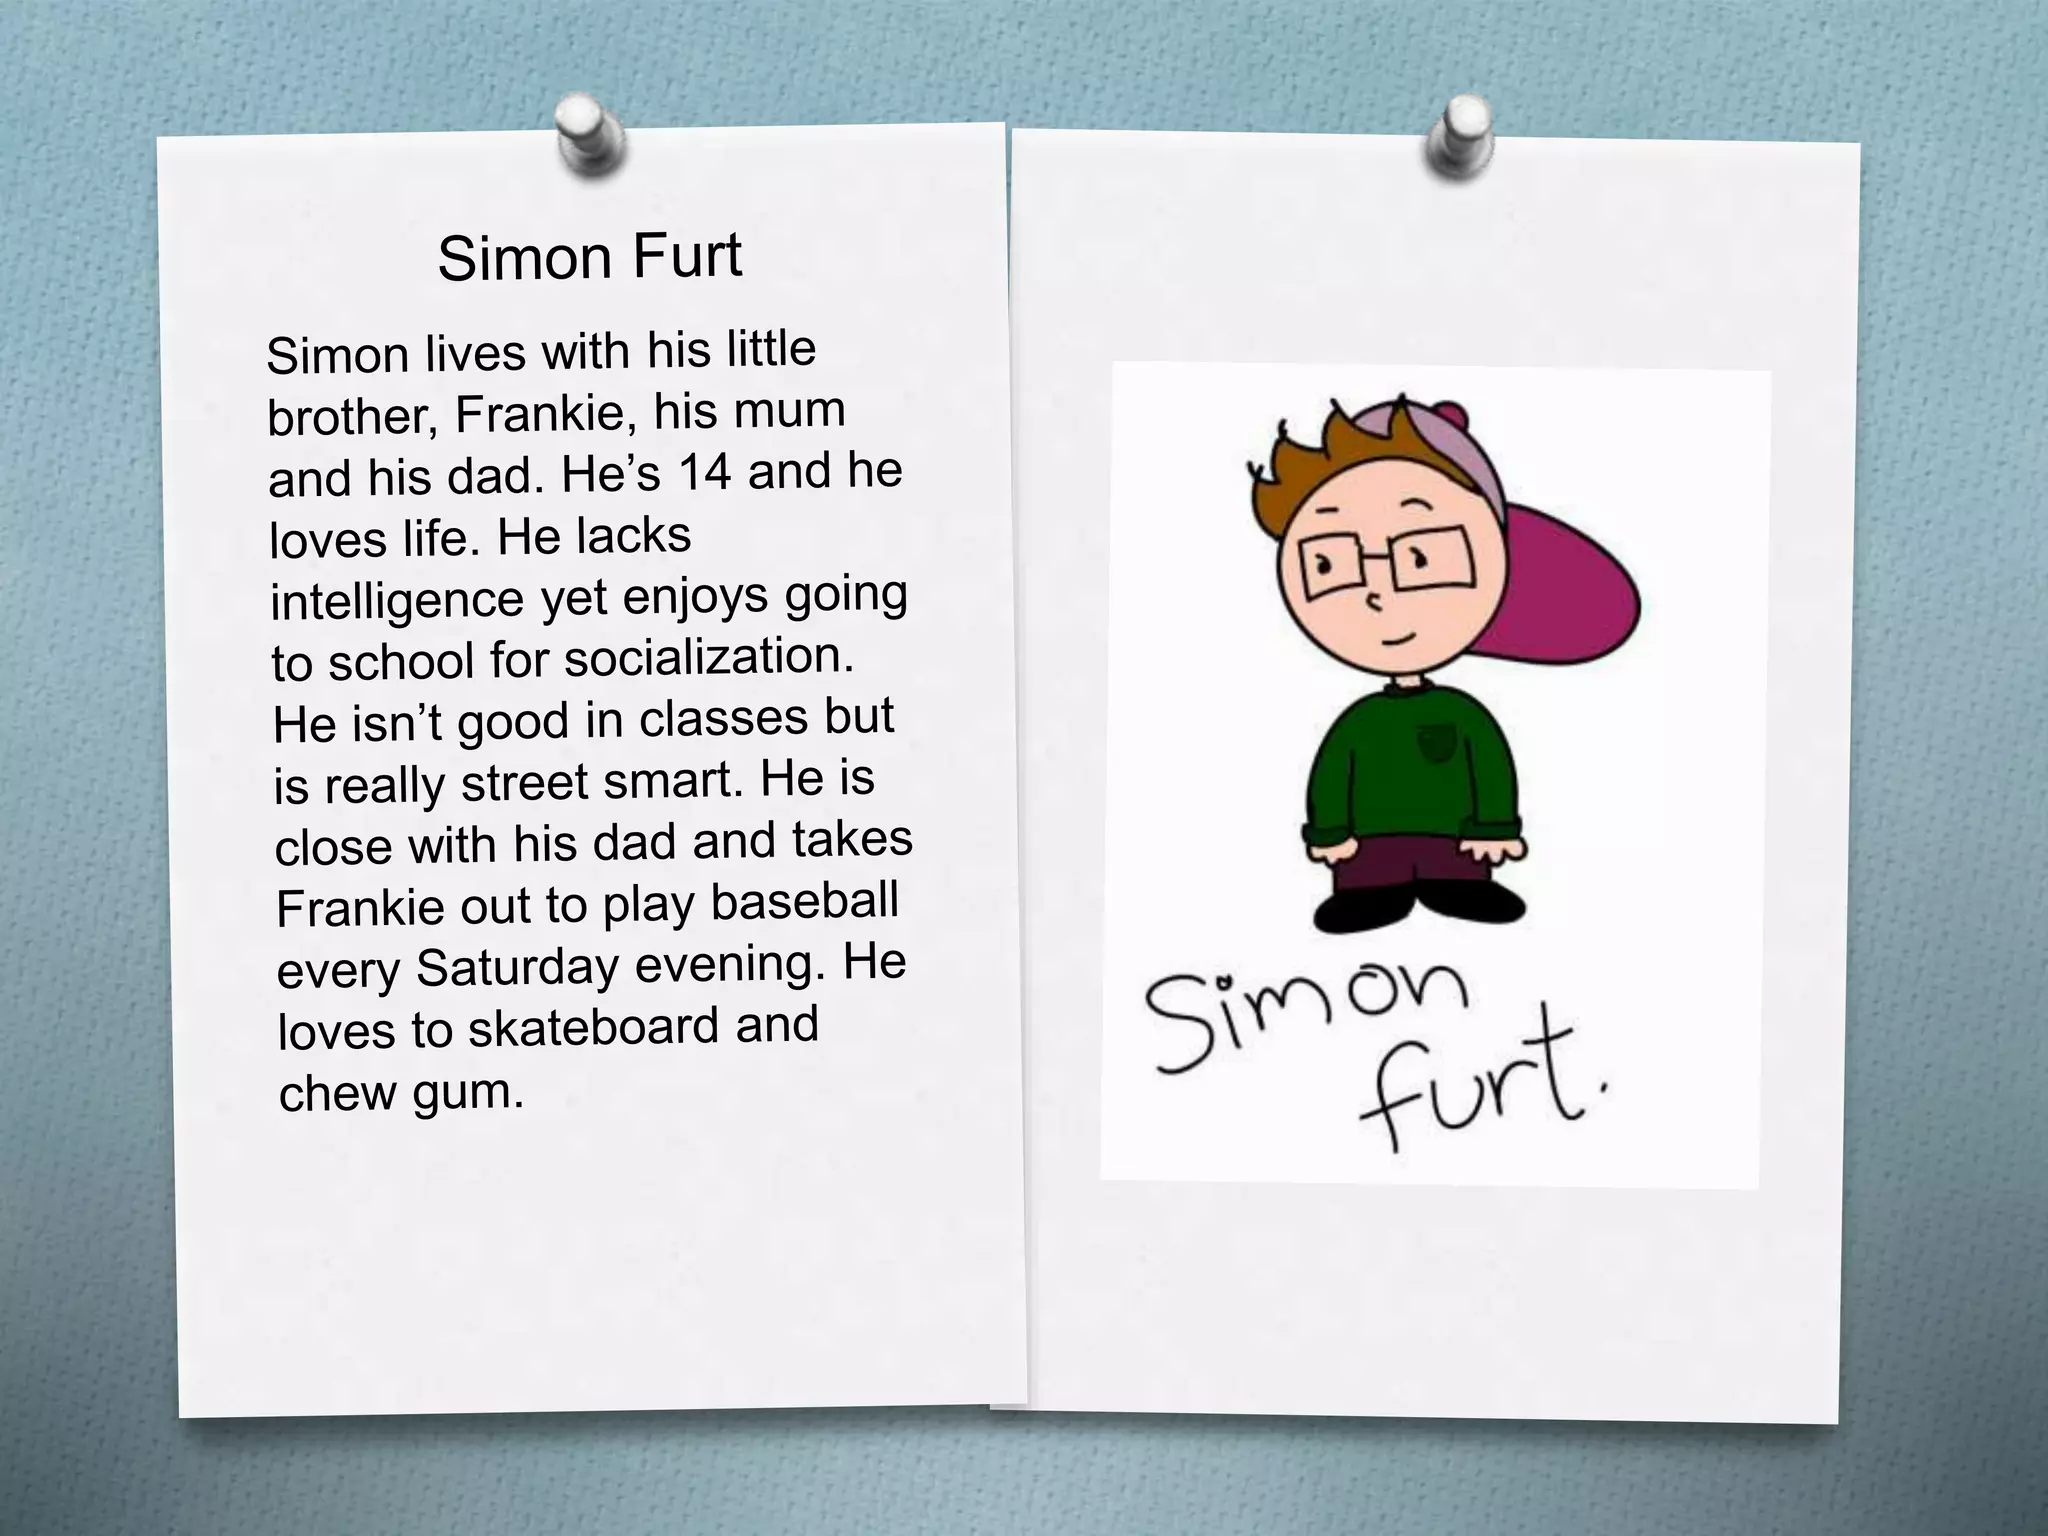 Simon Furt
Simon lives with his little
brother, Frankie, his mum
and his dad. He’s 14 and he
loves life. He lacks
intelligence yet enjoys going
to school for socialization.
He isn’t good in classes but
is really street smart. He is
close with his dad and takes
Frankie out to play baseball
every Saturday evening. He
loves to skateboard and
chew gum.
Simon
furt.